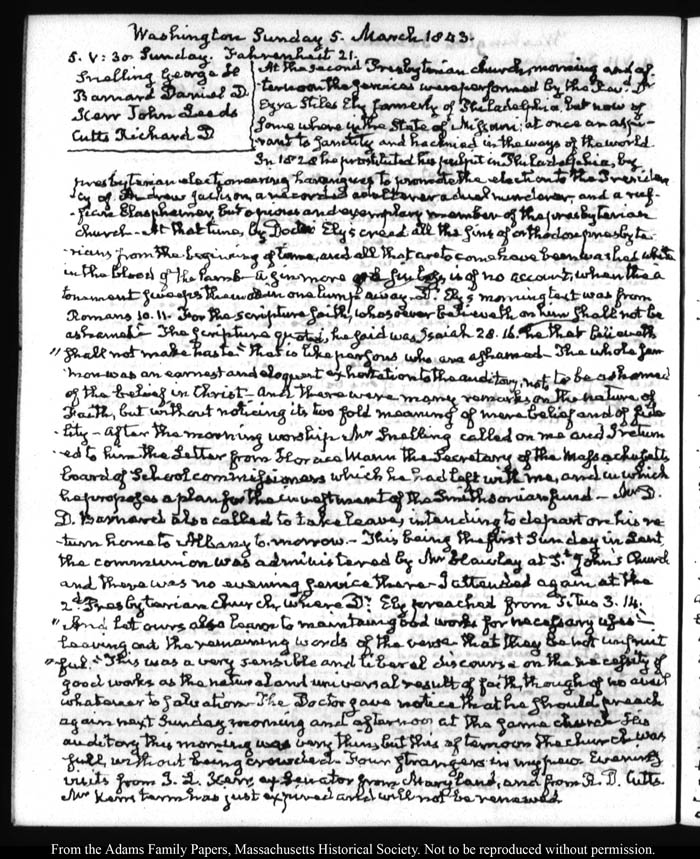 Washington Sunday 5. March 1843.
5. V: 30. Sunday. Fahrenheit 21.
Snelling George H
Barnard Daniel D.
Kerr John Leeds
Cutts Richard D
At the second Presbyterian church, morning and af-
ternoon the services were performed by the Rev. Dr
Ezra Stiles Ely formerly of Philadelphia, but now of
somewhere in the State of Missouri; at once an aspi-
rant to sanctity and hackneied in the ways of the world.
In 1828 he prostituted his pulpit in Philadelphia, by
presbyterian electioneering harangues to promote the election to the Presiden-
cy of Andrew Jackson a recorded adulterer a dual murderer, and a ruf-
fian Blasphemer, but a pious and exemplary member of the presbyterian
church— At that time, by Doctor Ely's creed all the sins of orthodox presbyte-
rians from the begining of time, and all that are to come have been washed white
in the blood of the Lamb— A sin more or a sin less, is of no account, when the a-
tonement sweeps them all in one lump away. Dr. Ely's morning text was from
Romans 10. 11. For the scripture saith, whosoever believeth on him shall not be
ashamed— The scripture quoted, he said was Isaiah 28. 16. he that believeth
"shall not make haste" that is like persons who are ashamed— The whole ser-
mon was an earnest and eloquent exhortation to the auditory, not to be ashamed
of the belief in Christ— And there were many remarks on the nature of
Faith, but without noticing its two fold meaning of mere belief and of fide-
lity— After the morning worship Mr Snelling called on me and I return-
ed to him the Letter from Horace Mann the Secretary of the Massachusetts
board of School commissioners which he had left with me, and in which
he proposes a plan for the investment of the Smithsonian fund— Mr D.
D. Barnard also called to take leave, intending to depart on his re-
turn home to Albany to-morrow.— This being the first Sunday in Lent
the communion was administered by Mr Hawley at St. John's Church
and there was no evening service there— I attended again at the
2d. Presbyterian church, where Dr. Ely preached from Titus 3. 14.
"And let ours also learn to maintain good works for necessary uses"—
leaving out the remaining words of the verse "that they be not unfruit-
"ful." This was a very sensible and liberal discourse on the necessity of
good works as the natural and universal result of faith, though of no avail
whatever to salvation— The Doctor gave notice that he should preach
again next Sunday morning and afternoon at the same church— His
auditory this morning was very thin, but this afternoon the church was
full, without being crowded— Four strangers in my pew. Evening
visits from J. L. Kerr, ex Senator from Maryland, and from R. D. Cutts.
Mr Kerr's term has just expired and will not be renewed.
From the Adams Family Papers, Massachusetts Historical Society. Not to be reproduced without permission.